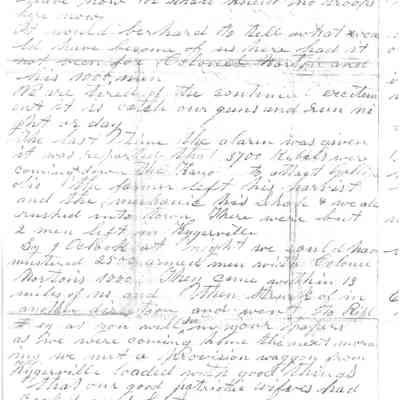 now we shall need no troops
here now.
It would be hard to tell what wou
ld have become of us here had it
not been for Colonel Norton and
his 1000 men
We are tired of the continual excitem
ent it is catch our guns and run ni
ght or day
The last time the alarm was given
it was reported that 3700 Rebels were
coming down the to attact
The farmer left his harvest
and the mechanic his Shop & we all
rushed into town There were but
2 men left in Hygerville
By 9 Oclock at night we could hav
mustered 2500 armed men with Colonel
Nortons 1000. They came within 13
miles of us and then struck of in
another direction and went to Kill
as you will in your papers
as we were coming home the next morn
ing we met a Provision waggon from
Hygerville loaded with good things
that our good patriotic wifes had